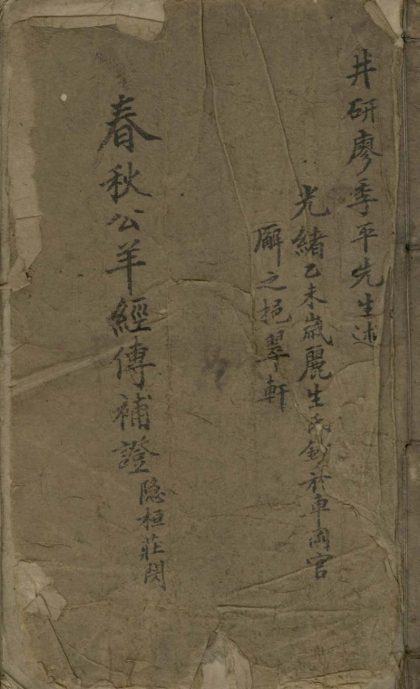 井研廖季平先生述
光緒乙未歲麗生氏鈔於車岡官
廨之挹翠軒
春秋公羊經傳補證隐桓莊閔